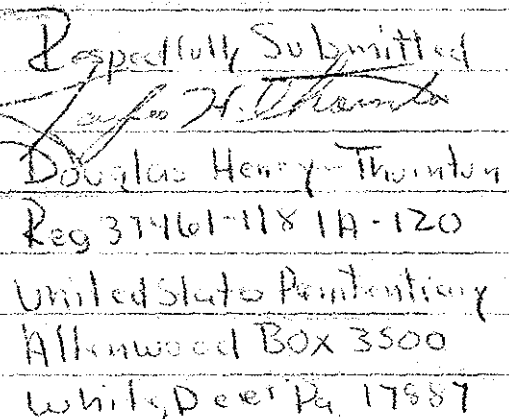 Respectfully Submitted
H. Thornton
Douglas Henry-Thornton
Reg 37461-118 1A-120
United States Penitentiary
Allenwood BOX 3500
White, Deer Pa, 17887